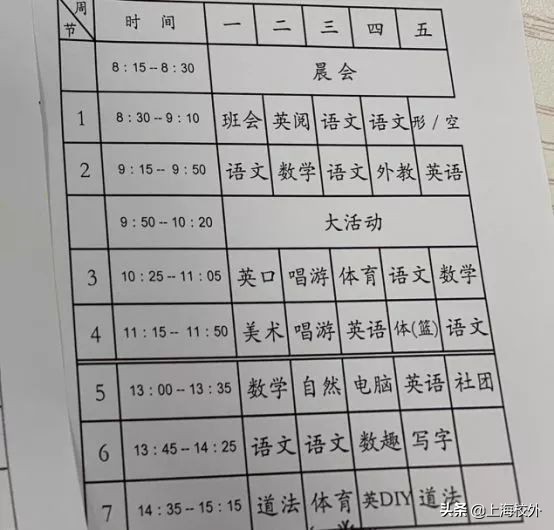 周
节 时 间 一 二 三 四 五
8：15--8：30 晨会
1 8：30--9：10 班会 英阅 语文 语文 形／空
2 9：15--9：50 语文 数学 语文 外教 英语
9：50--10：20 大活动
3 10：25--11：05 英口 唱游 体育 语文 数学
4 11：15--11：50 美术 唱游 英语 体(篮) 语文
5 13：00--13：35 数学 自然 电脑 英语 社团
6 13：45--14：25 语文 语文 数趣 写字
7 14：35--15：15 道法 体育 英DIY 道法
头条 @上海校外